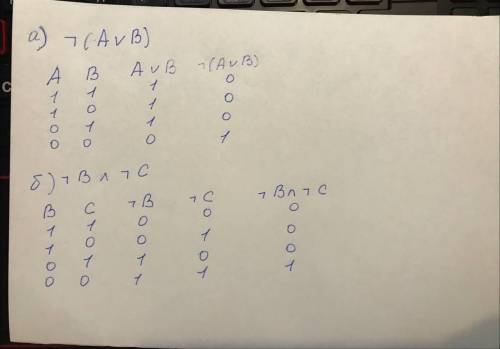 а) ¬(A∨B)
A B A∨B ¬(A∨B)
1 1 1 0
1 0 1 0
0 1 1 0
0 0 0 1
б) ¬B∧¬C
B C ¬B ¬C ¬B∧¬C
1 1 0 0 0
1 0 0 1 0
0 1 1 0 0
0 0 1 1 1